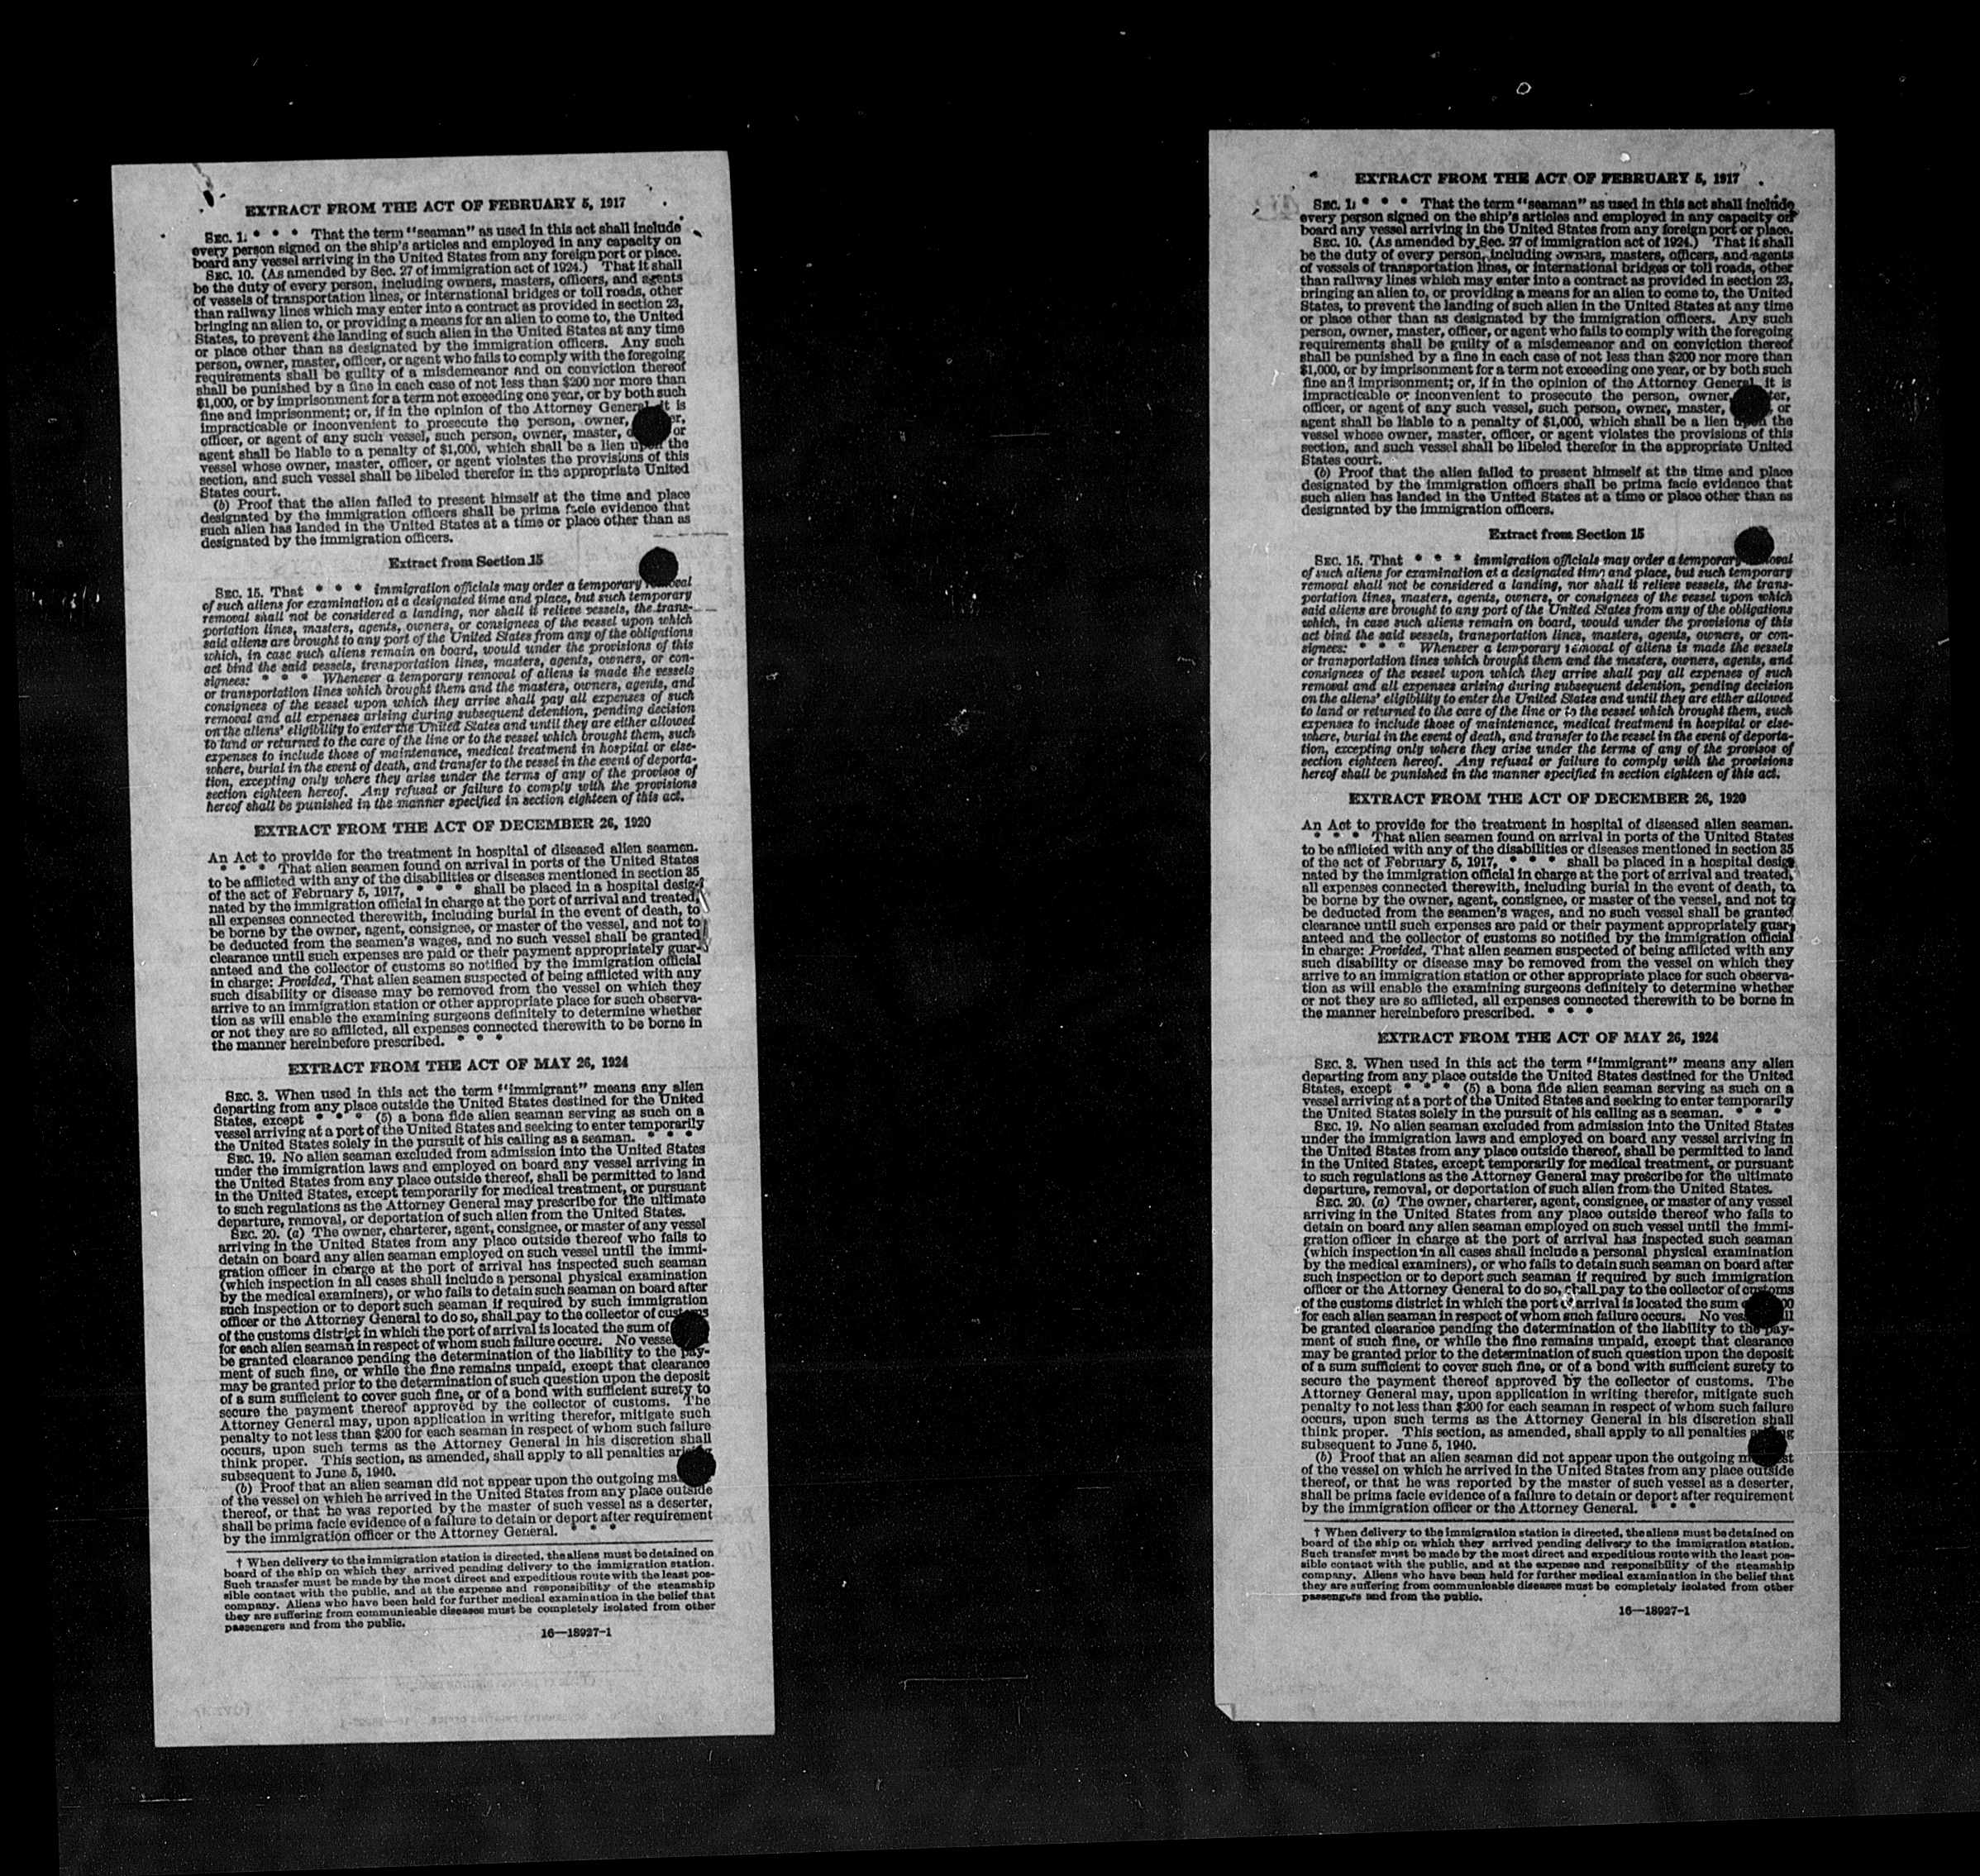 EXTRACT FROM THE ACT OF FEBRUARY 5, 1917
SEC. 1. * * * That the term "seaman" as used in this act shall include
every person signed on the ship's articles and employed in any capacity on
board any vessel arriving in the United States from any foreign port or place.
SEC. 10. (As amended by Sec. 27 of immigration act of 1924.) That it shall
be the duty of every person, including owners, masters, officers, and agents
of vessels of transportation lines, or international bridges or toll roads, other
than railway lines which may enter into a contract as provided in section 23,
bringing an alien to, or providing a means for an alien to come to, the United
States, to prevent the landing of such alien in the United States at any time
or place other than as designated by the immigration officers. Any such
person, owner, master, officer, or agent who fails to comply with the foregoing
requirements shall be guilty of a misdemeanor and on conviction thereof
shall be punished by a fine in each case of not less than $200 nor more than
$1,000, or by imprisonment for a term not exceeding one year, or by both such
fine and imprisonment; or, if in the opinion of the Attorney General it is
impracticable or inconvenient to prosecute the person, owner,
officer, or agent of any such vessel, such person, owner, master, or
agent shall be liable to a penalty of $1,000, which shall be a lien upon the
vessel whose owner, master, officer, or agent violates the provisions of this
section, and such vessel shall be libeled therefor in the appropriate United
States court.
(b) Proof that the alien failed to present himself at the time and place
designated by the immigration officers shall be prima facie evidence that
such alien has landed in the United States at a time or place other than as
designated by the immigration officers.
Extract from Section 15
SEC. 15. That * * * immigration officials may order a temporary removal
of such aliens for examination at a designated time and place, but such temporary
removal shall not be considered a landing, nor shall it relieve vessels, the trans-
portation lines, masters, agents, owners, or consignees of the vessel upon which
said aliens are brought to any port of the United States from any of the obligations
which, in case such aliens remain on board, would under the provisions of this
act bind the said vessels, transportation lines, masters, agents, owners, or con-
signees: * * * Whenever a temporary removal of aliens is made the vessels
or transportation lines which brought them and the masters, owners, agents, and
consignees of the vessel upon which they arrive shall pay all expenses of such
removal and all expenses arising during subsequent detention, pending decision
on the aliens' eligibility to enter the United States and until they are either allowed
to land or returned to the care of the line or to the vessel which brought them, such
expenses to include those of maintenance, medical treatment in hospital or else-
where, burial in the event of death, and transfer to the vessel in the event of deporta-
tion, excepting only where they arise under the terms of any of the provisos of
section eighteen hereof. Any refusal or failure to comply with the provisions
hereof shall be punished in the manner specified in section eighteen of this act.
EXTRACT FROM THE ACT OF DECEMBER 26, 1920
An Act to provide for the treatment in hospital of diseased alien seamen.
* * * That alien seamen found on arrival in ports of the United States
to be afflicted with any of the disabilities or diseases mentioned in section 35
of the act of February 5, 1917, * * * shall be placed in a hospital desig-
nated by the immigration official in charge at the port of arrival and treated,
all expenses connected therewith, including burial in the event of death, to
be borne by the owner, agent, consignee, or master of the vessel, and not to
be deducted from the seamen's wages, and no such vessel shall be granted
clearance until such expenses are paid or their payment appropriately guar-
anteed and the collector of customs so notified by the immigration official
in charge: Provided, That alien seamen suspected of being afflicted with any
such disability or disease may be removed from the vessel on which they
arrive to an immigration station or other appropriate place for such observa-
tion as will enable the examining surgeons definitely to determine whether
or not they are so afflicted, all expenses connected therewith to be borne in
the manner hereinbefore prescribed. * * *
EXTRACT FROM THE ACT OF MAY 26, 1924
SEC. 3. When used in this act the term "immigrant" means any alien
departing from any place outside the United States destined for the United
States, except * * * (5) a bona fide alien seaman serving as such on a
vessel arriving at a port of the United States and seeking to enter temporarily
the United States solely in the pursuit of his calling as a seaman. * * *
SEC. 19. No alien seaman excluded from admission into the United States
under the immigration laws and employed on board any vessel arriving in
the United States from any place outside thereof, shall be permitted to land
in the United States, except temporarily for medical treatment, or pursuant
to such regulations as the Attorney General may prescribe for the ultimate
departure, removal, or deportation of such alien from the United States.
SEC. 20. (a) The owner, charterer, agent, consignee, or master of any vessel
arriving in the United States from any place outside thereof who fails to
detain on board any alien seaman employed on such vessel until the immi-
gration officer in charge at the port of arrival has inspected such seaman
(which inspection in all cases shall include a personal physical examination
by the medical examiners), or who fails to detain such seaman on board after
such inspection or to deport such seaman if required by such immigration
officer or the Attorney General to do so, shall pay to the collector of customs
of the customs district in which the port of arrival is located the sum of
for each alien seaman in respect of whom such failure occurs. No vessel
be granted clearance pending the determination of the liability to the pay-
ment of such fine, or while the fine remains unpaid, except that clearance
may be granted prior to the determination of such question upon the deposit
of a sum sufficient to cover such fine, or of a bond with sufficient surety to
secure the payment thereof approved by the collector of customs. The
Attorney General may, upon application in writing therefor, mitigate such
penalty to not less than $200 for each seaman in respect of whom such failure
occurs, upon such terms as the Attorney General in his discretion shall
think proper. This section, as amended, shall apply to all penalties arising
subsequent to June 5, 1940.
(b) Proof that an alien seaman did not appear upon the outgoing
of the vessel on which he arrived in the United States from any place outside
thereof, or that he was reported by the master of such vessel as a deserter,
shall be prima facie evidence of a failure to detain or deport after requirement
by the immigration officer or the Attorney General. * * *
† When delivery to the immigration station is directed, the aliens must be detained on
board of the ship on which they arrived pending delivery to the immigration station.
Such transfer must be made by the most direct and expeditious route with the least pos-
sible contact with the public, and at the expense and responsibility of the steamship
company. Aliens who have been held for further medical examination in the belief that
they are suffering from communicable diseases must be completely isolated from other
passengers and from the public.
16—18927-1
EXTRACT FROM THE ACT OF FEBRUARY 5, 1917
SEC. 1. * * * That the term "seaman" as used in this act shall include
every person signed on the ship's articles and employed in any capacity on
board any vessel arriving in the United States from any foreign port or place.
SEC. 10. (As amended by Sec. 27 of immigration act of 1924.) That it shall
be the duty of every person, including owners, masters, officers, and agents
of vessels of transportation lines, or international bridges or toll roads, other
than railway lines which may enter into a contract as provided in section 23,
bringing an alien to, or providing a means for an alien to come to, the United
States, to prevent the landing of such alien in the United States at any time
or place other than as designated by the immigration officers. Any such
person, owner, master, officer, or agent who fails to comply with the foregoing
requirements shall be guilty of a misdemeanor and on conviction thereof
shall be punished by a fine in each case of not less than $200 nor more than
$1,000, or by imprisonment for a term not exceeding one year, or by both such
fine and imprisonment; or, if in the opinion of the Attorney General it is
impracticable or inconvenient to prosecute the person, owner,
officer, or agent of any such vessel, such person, owner, master, or
agent shall be liable to a penalty of $1,000, which shall be a lien upon the
vessel whose owner, master, officer, or agent violates the provisions of this
section, and such vessel shall be libeled therefor in the appropriate United
States court.
(b) Proof that the alien failed to present himself at the time and place
designated by the immigration officers shall be prima facie evidence that
such alien has landed in the United States at a time or place other than as
designated by the immigration officers.
Extract from Section 15
SEC. 15. That * * * immigration officials may order a temporary removal
of such aliens for examination at a designated time and place, but such temporary
removal shall not be considered a landing, nor shall it relieve vessels, the trans-
portation lines, masters, agents, owners, or consignees of the vessel upon which
said aliens are brought to any port of the United States from any of the obligations
which, in case such aliens remain on board, would under the provisions of this
act bind the said vessels, transportation lines, masters, agents, owners, or con-
signees: * * * Whenever a temporary removal of aliens is made the vessels
or transportation lines which brought them and the masters, owners, agents, and
consignees of the vessel upon which they arrive shall pay all expenses of such
removal and all expenses arising during subsequent detention, pending decision
on the aliens' eligibility to enter the United States and until they are either allowed
to land or returned to the care of the line or to the vessel which brought them, such
expenses to include those of maintenance, medical treatment in hospital or else-
where, burial in the event of death, and transfer to the vessel in the event of deporta-
tion, excepting only where they arise under the terms of any of the provisos of
section eighteen hereof. Any refusal or failure to comply with the provisions
hereof shall be punished in the manner specified in section eighteen of this act.
EXTRACT FROM THE ACT OF DECEMBER 26, 1920
An Act to provide for the treatment in hospital of diseased alien seamen.
* * * That alien seamen found on arrival in ports of the United States
to be afflicted with any of the disabilities or diseases mentioned in section 35
of the act of February 5, 1917, * * * shall be placed in a hospital desig-
nated by the immigration official in charge at the port of arrival and treated,
all expenses connected therewith, including burial in the event of death, to
be borne by the owner, agent, consignee, or master of the vessel, and not to
be deducted from the seamen's wages, and no such vessel shall be granted
clearance until such expenses are paid or their payment appropriately guar-
anteed and the collector of customs so notified by the immigration official
in charge: Provided, That alien seamen suspected of being afflicted with any
such disability or disease may be removed from the vessel on which they
arrive to an immigration station or other appropriate place for such observa-
tion as will enable the examining surgeons definitely to determine whether
or not they are so afflicted, all expenses connected therewith to be borne in
the manner hereinbefore prescribed. * * *
EXTRACT FROM THE ACT OF MAY 26, 1924
SEC. 3. When used in this act the term "immigrant" means any alien
departing from any place outside the United States destined for the United
States, except * * * (5) a bona fide alien seaman serving as such on a
vessel arriving at a port of the United States and seeking to enter temporarily
the United States solely in the pursuit of his calling as a seaman. * * *
SEC. 19. No alien seaman excluded from admission into the United States
under the immigration laws and employed on board any vessel arriving in
the United States from any place outside thereof, shall be permitted to land
in the United States, except temporarily for medical treatment, or pursuant
to such regulations as the Attorney General may prescribe for the ultimate
departure, removal, or deportation of such alien from the United States.
SEC. 20. (a) The owner, charterer, agent, consignee, or master of any vessel
arriving in the United States from any place outside thereof who fails to
detain on board any alien seaman employed on such vessel until the immi-
gration officer in charge at the port of arrival has inspected such seaman
(which inspection in all cases shall include a personal physical examination
by the medical examiners), or who fails to detain such seaman on board after
such inspection or to deport such seaman if required by such immigration
officer or the Attorney General to do so, shall pay to the collector of customs
of the customs district in which the port of arrival is located the sum
for each alien seaman in respect of whom such failure occurs. No
be granted clearance pending the determination of the liability to the pay-
ment of such fine, or while the fine remains unpaid, except that clearance
may be granted prior to the determination of such question upon the deposit
of a sum sufficient to cover such fine, or of a bond with sufficient surety to
secure the payment thereof approved by the collector of customs. The
Attorney General may, upon application in writing therefor, mitigate such
penalty to not less than $200 for each seaman in respect of whom such failure
occurs, upon such terms as the Attorney General in his discretion shall
think proper. This section, as amended, shall apply to all penalties arising
subsequent to June 5, 1940.
(b) Proof that an alien seaman did not appear upon the outgoing
of the vessel on which he arrived in the United States from any place outside
thereof, or that he was reported by the master of such vessel as a deserter,
shall be prima facie evidence of a failure to detain or deport after requirement
by the immigration officer or the Attorney General. * * *
† When delivery to the immigration station is directed, the aliens must be detained on
board of the ship on which they arrived pending delivery to the immigration station.
Such transfer must be made by the most direct and expeditious route with the least pos-
sible contact with the public, and at the expense and responsibility of the steamship
company. Aliens who have been held for further medical examination in the belief that
they are suffering from communicable diseases must be completely isolated from other
passengers and from the public.
16—18927-1